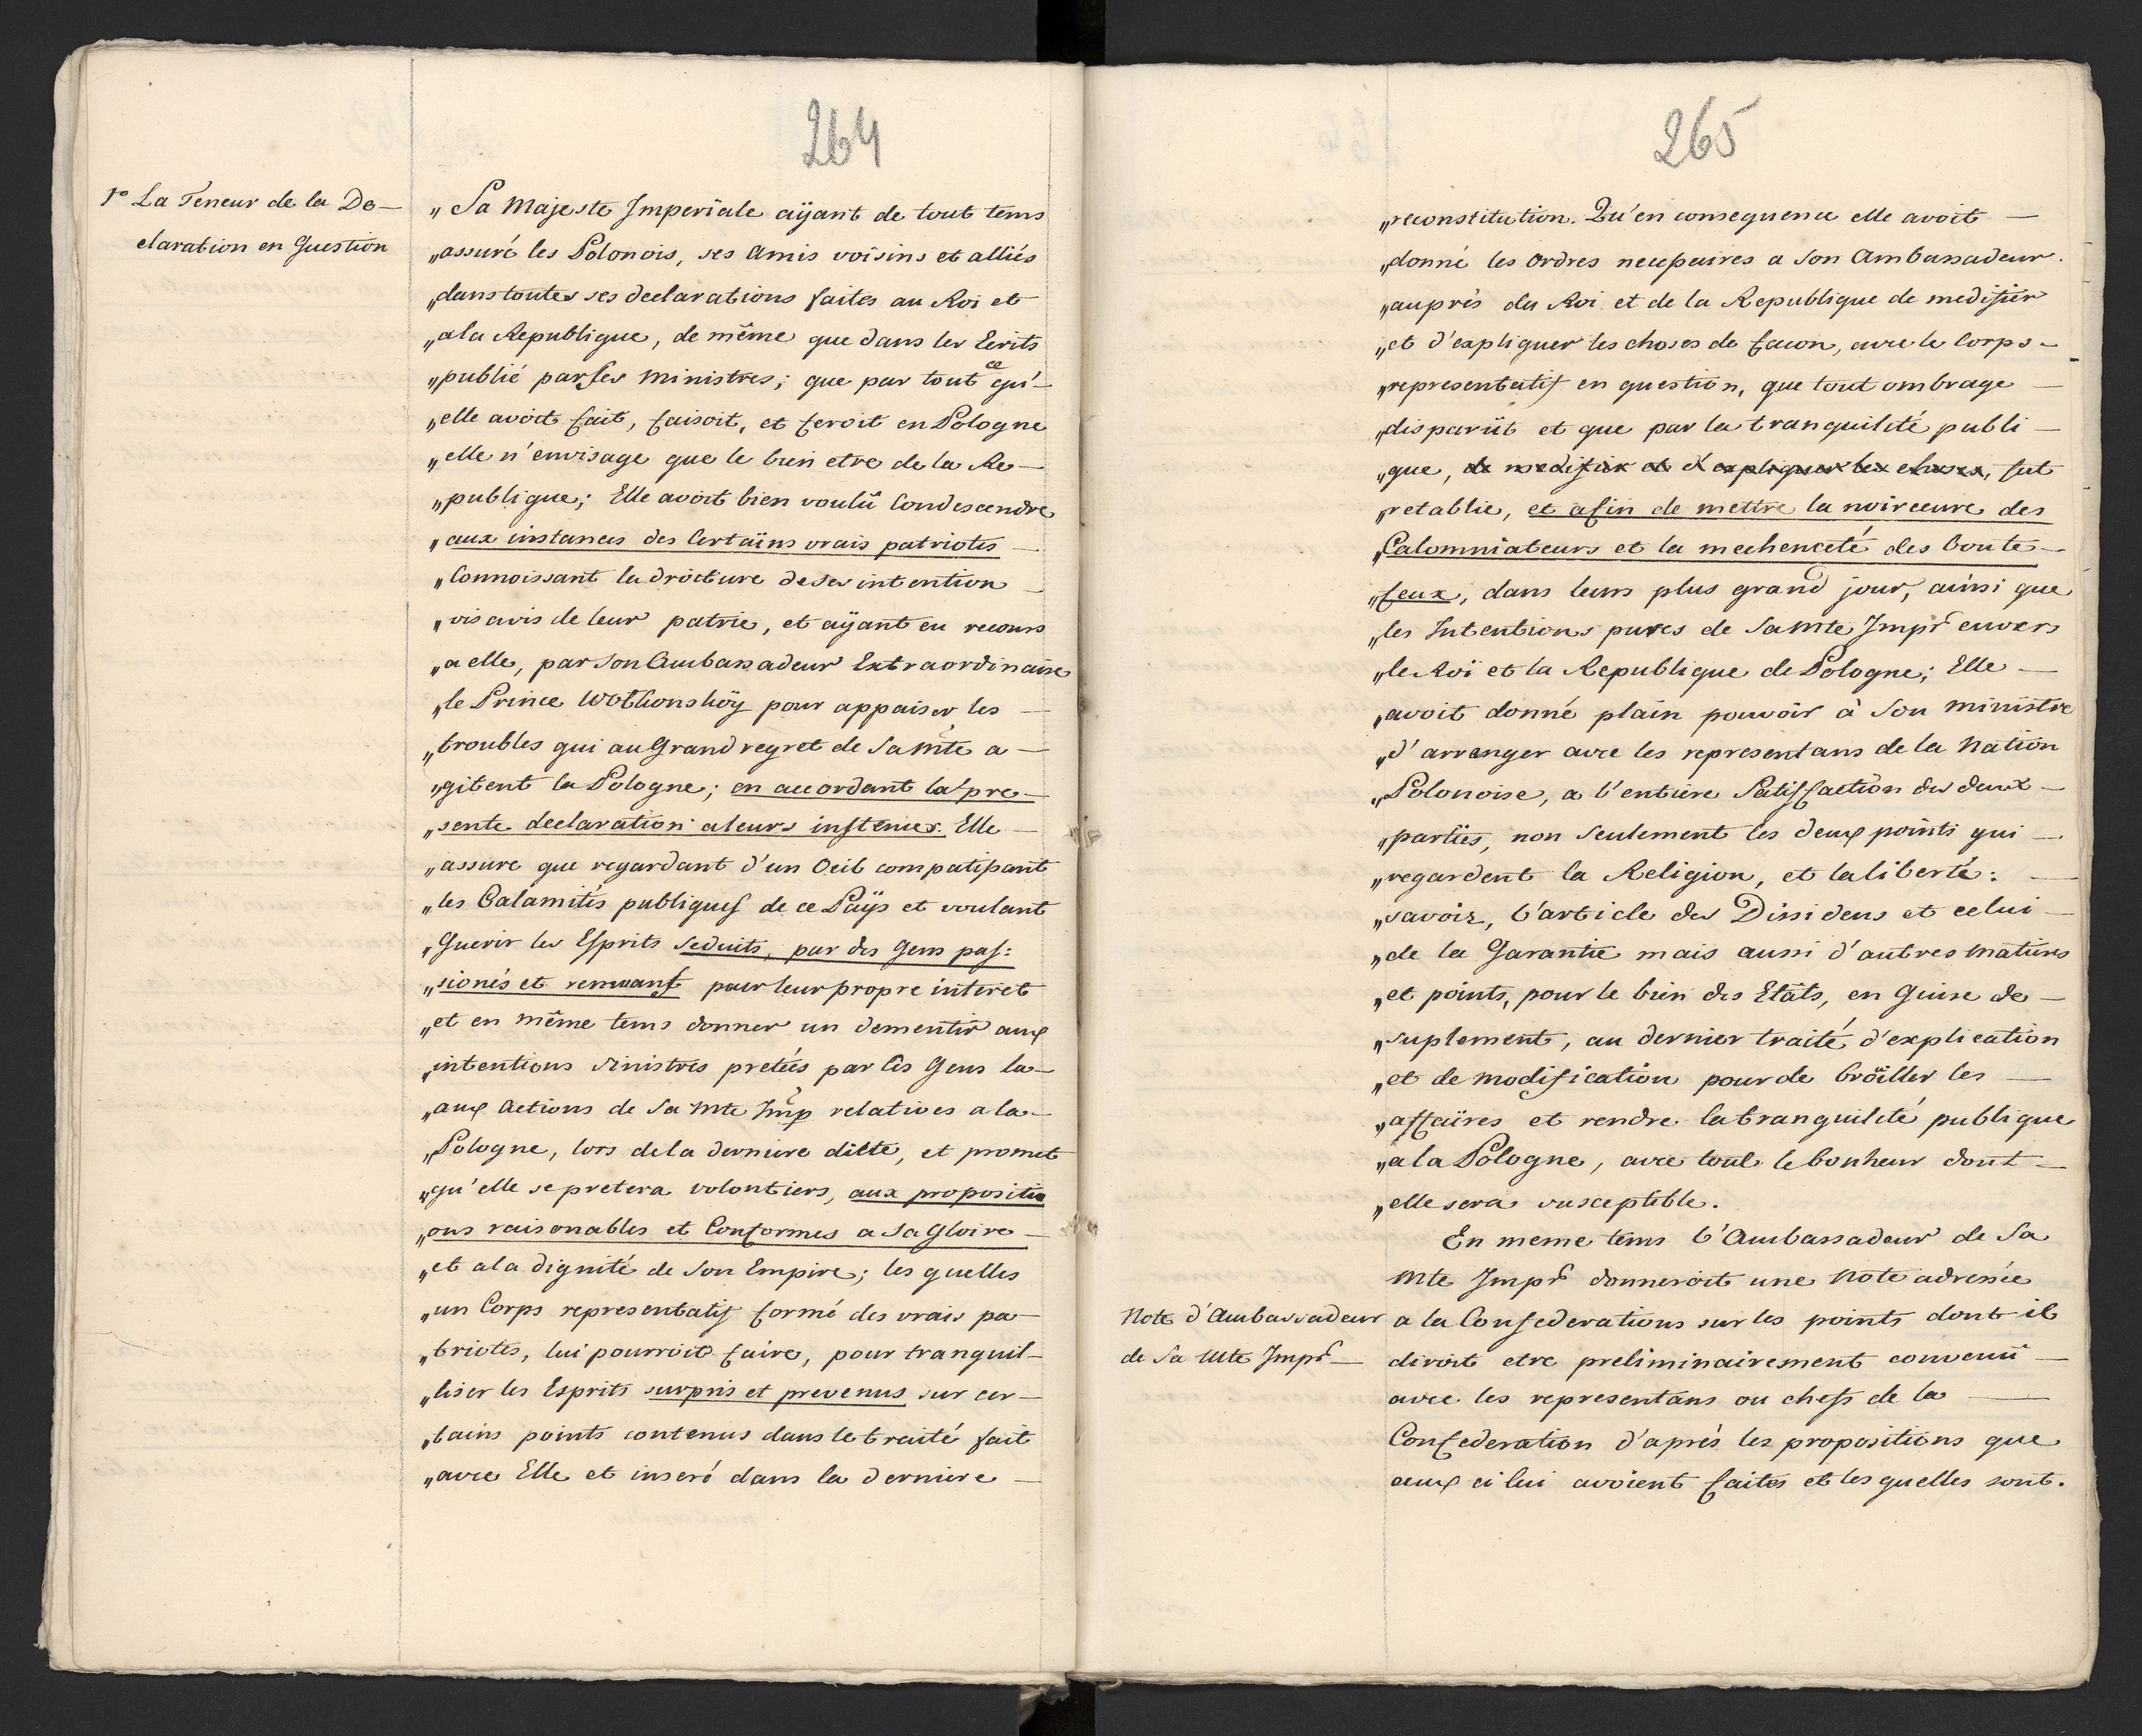 264
1º La Teneur de la De-
claration en Question
„Sa Majeste Imperiale aÿant de tout tems
„assuré les Polonois, ses Amis voisins et alliés
„dans toutes ses declarations faites au Roi et
„a la Republique, de même que dans les Ecrits
„publié par ses Ministres; que par tout ce qu'-
„elle avoit fait, faisoit, et feroit en Pologne
„elle n'envisage que le bien etre de la Re-
„publique; Elle avoit bien voulü Condescendre
„aux instances des Certains vrais patriotes
„Connoissant la droiture de ses intention
„vis avis de leur patrie, et aÿant eu recours
„a elle, par son Ambassadeur Extraordinaire
„le Prince Wolkonskoÿ pour appaiser les
„troubles qui au Grand regret de Sa Mte a-
„gitent la Pologne; en accordant la pre-
„sente declaration a leurs instences. Elle
„assure que regardant d'un Oeil compatissant
„les Calamités publiques de ce Païs et voulant
„Guerir les Esprits seduits, par des Gens pas:
„sionés et remuans pour leur propre interet
„et en même tems donner un dementir aux
„intentions sinistres pretées par les Gens la-
„aux Actions de Sa Mte Imp relatives a la
„Pologne, lors de la derniere diëte, et promet
„qu'elle se pretera volontiers, aux propositio
„ons raisonables et Conformes a sa Gloire
„et a la dignité de son Empire; les quelles
„un Corps representatif formé des vrais pa-
„triotes, lui pourroit faire, pour tranquil-
„liser les Esprits surpris et prevenus sur cer-
„tains points contenus dans le traité fait
„avec Elle et inseré dans la derniere
265
„reconstitution. Qu'en consequence elle avoit
„donné les Ordres necessaires a son Ambassadeur.
„auprès du Roi et de la Republique de medifier
„et d'expliquer les choses de facon, avec le Corps-
„representatif en question, que tout ombrage
„disparüt et que par la tranquilité publi-
„que, de modifier et d'expliquer les choses, fut
„retablie, et afin de mettre la noirceure des
„Calomniateurs et la mechenceté des boute-
„feux, dans leurs plus grand jour, ainsi que
„les Intentions pures de Sa Mte Impr envers
„le Roi et la Republique de Pologne; Elle
„avoit donné plain pouvoir à Son Ministre
„d'arrenger avec les representans de la Nation
„Polonoise, a l'entiere Satisfaction des deux
„parties, non seulement les deux points qui
„regardent la Religion, et la liberté:
„savoir, l'article des Dissidens et celui
„de la Garantie mais aussi d'autres Matieres
„et points, pour le bien des Etâts, en Guise de
„suplement, au dernier traité d'explication
„et de modification pour de bröiller les
„affaires et rendre la tranquilité publique
„a la Pologne, avec tout le bonheur dont
„elle sera susceptible.
En meme tems l'Ambassadeur de Sa
Mte Impr donneroit une Note adressée
Note d'Ambassadeur
de Sa Mte Impr
a la Confederations sur les points dont il
diroit etre preliminairement convenü
avec les representans ou chefs de la
Confederation d'aprés les propositions que
ceux ci lui avoient faites et les quelles sont.